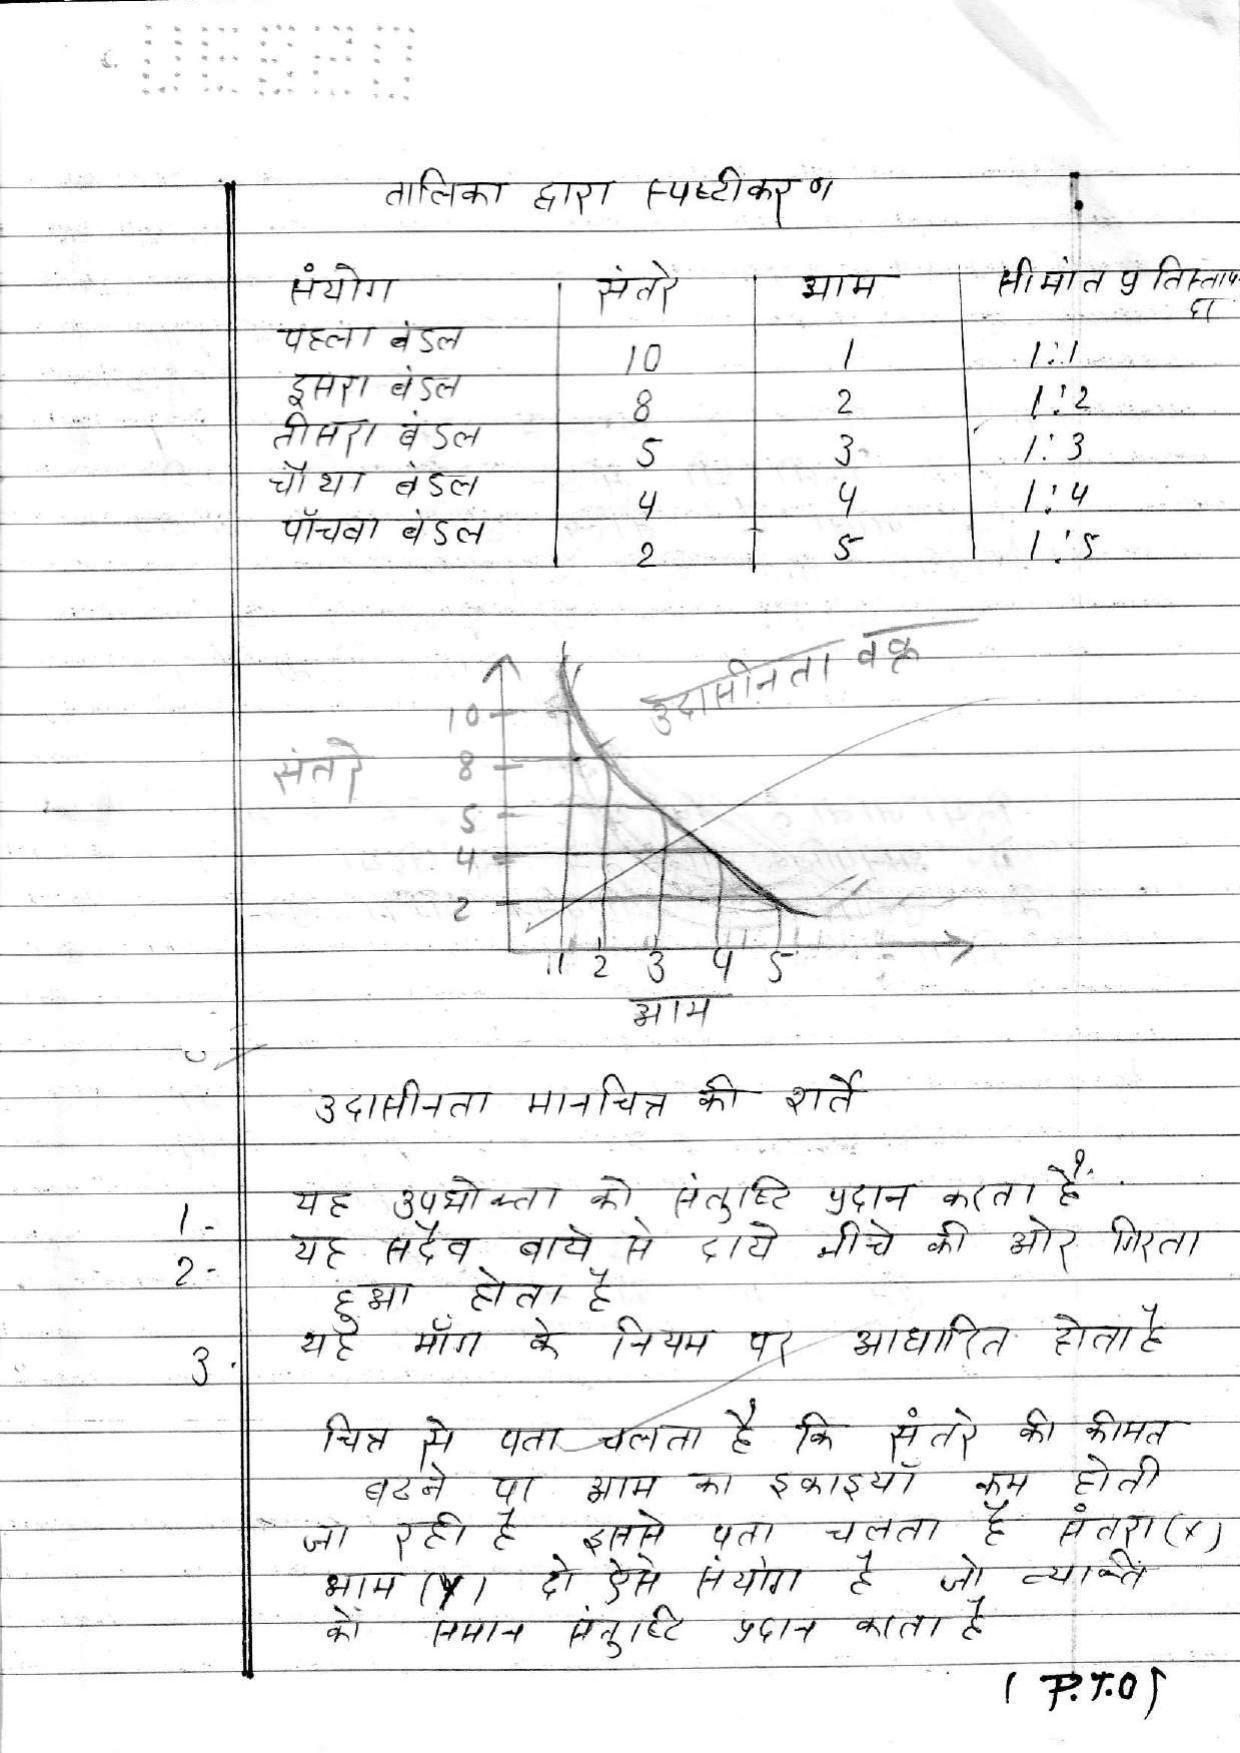 तालिका द्वारा स्पष्टीकरण
संयोग संतरे आम सीमांत प्रतिस्ताप
दर
पहला बंडल 10 1 1:1
दूसरा बंडल 8 2 1:2
तीसरा बंडल 5 3 1:3
चौथा बंडल 4 4 1:4
पाँचवा बंडल 2 5 1:5
उदासीनता वक्र
10
संतरे 8
5
4
2
1 2 3 4 5
आम
उदासीनता मानचित्र की शर्ते
1- यह उपभोक्ता को संतुष्टि प्रदान करता है
2- यह सदैव बाये से दाये नीचे की ओर गिरता
हुआ होता है
3. यह माँग के नियम पर आधारित होता है
चित्र से पता चलता है कि संतरे की कीमत
बढने पर आम का इकाइयाँ कम होती
जा रही है इससे पता चलता है संतरा (X)
आम (Y) दो ऐसे संयोग है जो व्यक्ति
को समान संतुष्टि प्रदान करता है
(P.T.O)